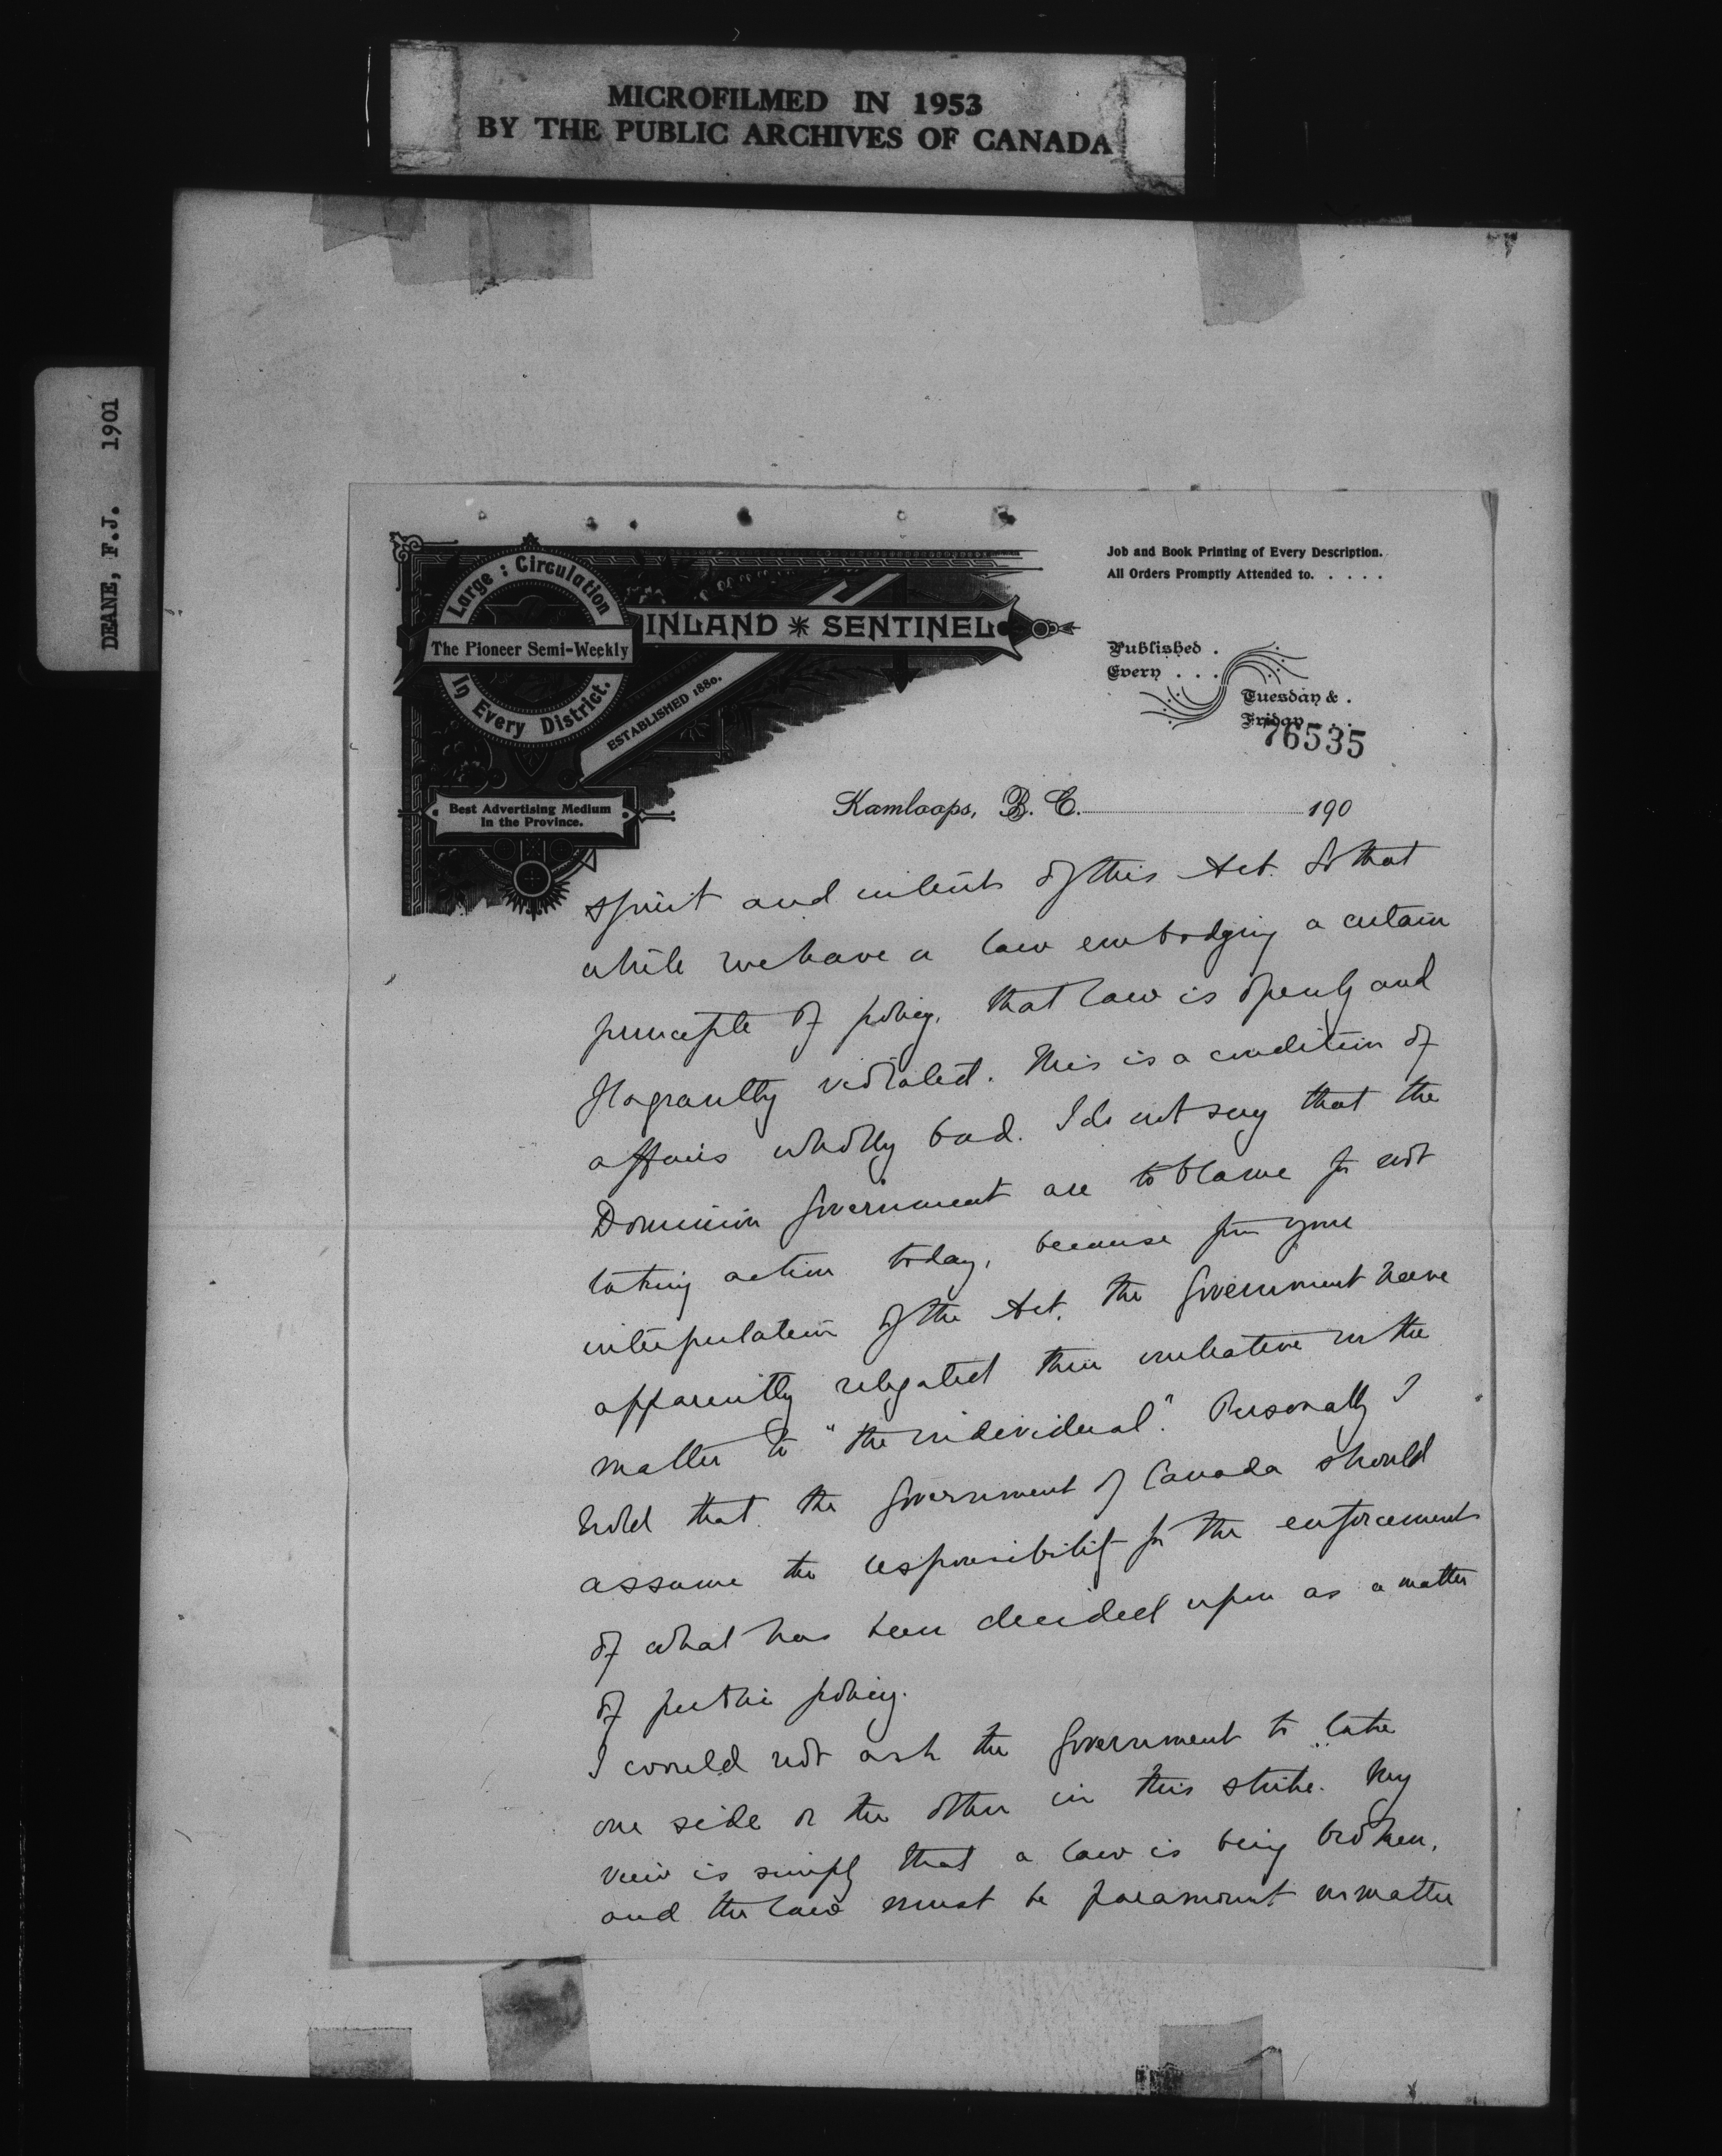 MICROFILMED IN 1953
BY THE PUBLIC ARCHIVES OF CANADA
DEANE, F.J. 1901
Large : Circulation
The Pioneer Semi-Weekly
In Every District.
INLAND SENTINEL
ESTABLISHED 1880.
Best Advertising Medium
in the Province.
Job and Book Printing of Every Description.
All Orders Promptly Attended to. . . . .
Published .
Every . . .
Tuesday & .
Friday . . .
76535
Kamloops, B. C. 190
spirit and intent of this Act. So that
while we have a law embodying a certain
principle of policy, that law is openly and
flagrantly violated. This is a condition of
affairs wholly bad. I do not say that the
Dominion Government are to blame for not
taking action today, because from your
interpretation of the Act, the Government have
apparently relegated their initiative in the
matter to "the individual". Personally I
hold that the Government of Canada should
assume the responsibility for the enforcement
of what has been decided upon as a matter
of public policy.
I would not ask the Government to take
one side or the other in this strike. My
view is simply that a law is being broken,
and the law must be paramount no matter